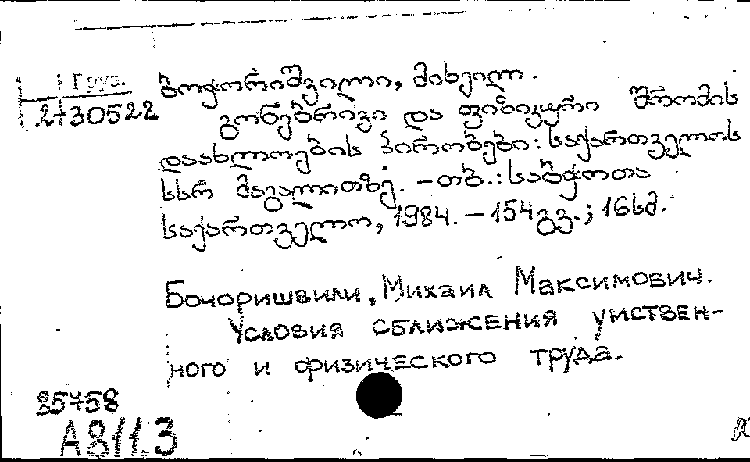 Груз.
2-30522
ბოჭორიშვილი, მიხეილ.
გონებრივი და ფიზიკური შრომის
დაახლოების პირობები: საქართველოს
სსრ მაგალითზე. – თბ.: საბჭოთა
საქართველო, 1984. – 154 გვ.; 16 სმ.
Бочоришвили, Михаил Максимович.
Условия сближения умствен-
ного и физического труда.
85458
А811.3